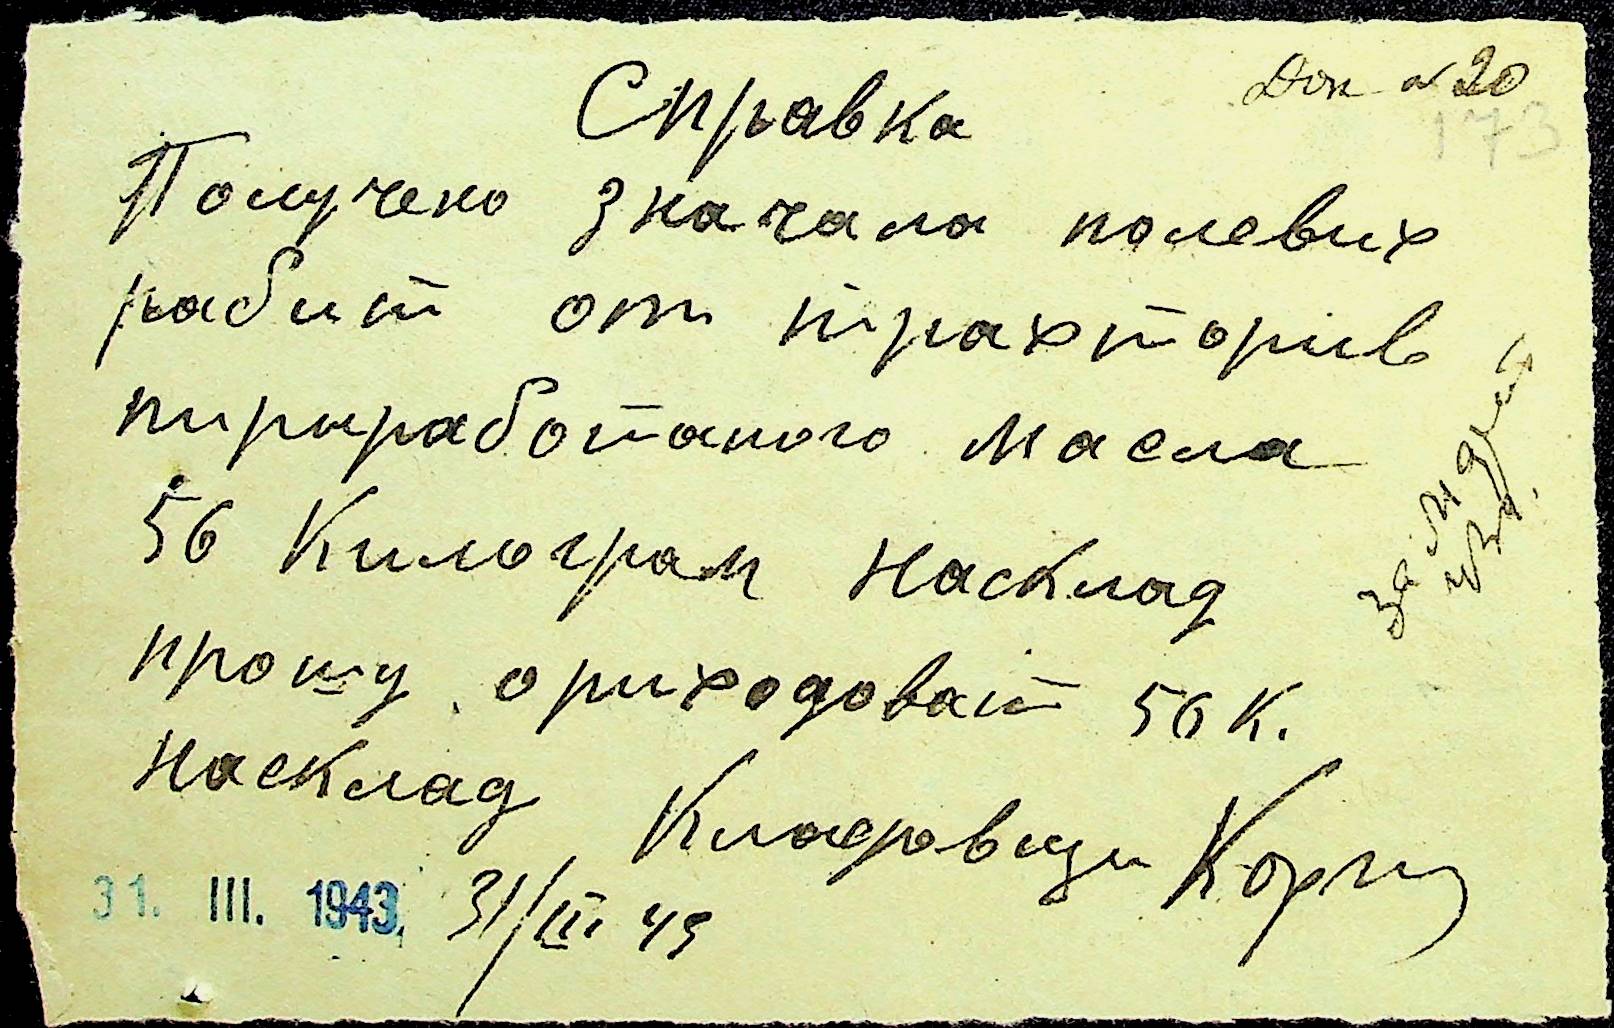 Док № 20
173
Справка
Получено значала полевих
рабит от трахторив
пирыработаного масла
56 Килограм насклад
прошу оприходоват 56 К.
насклад Кладовщи
31. III. 1943, 31/III 43
за